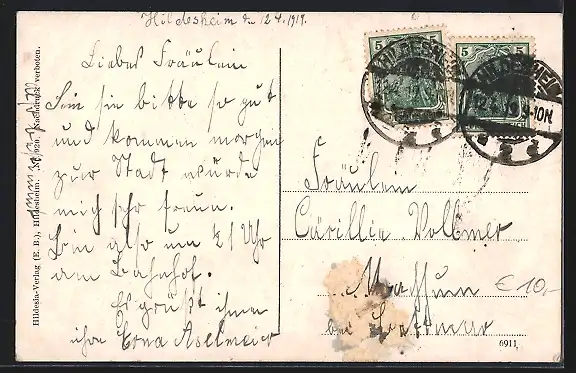 Hildesheim d. 12.4.1919.
Liebes Fräulein
Sein sie bitte so gut
und kommen morgen
zur Stadt würde
mich sehr freun.
Bin also um 21 Uhr
am Bahnhof.
Es grüßt ihnen
ihre Erna Aselmeier
Hildesia-Verlag (E. B.), Hildesheim. Nr. 920. Nachdruck verboten.
5 5
5 5
HILDESHEIM
HILDESHEIM
-10N
Fräulein
Cäcillia Vollmer
bei
€ 10,-
6911